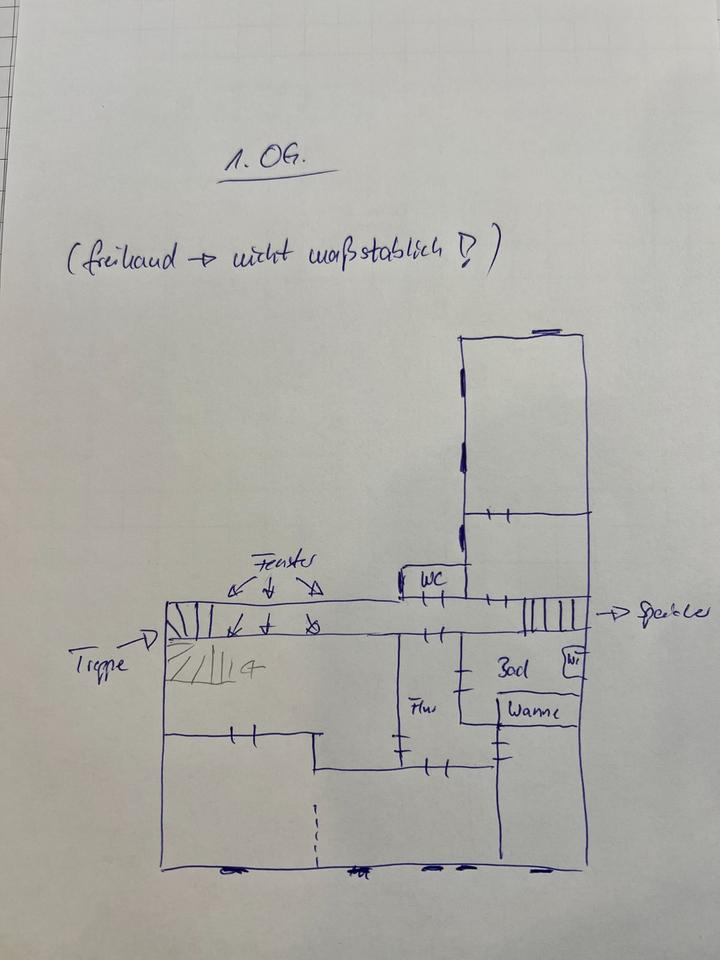 1. OG.
(freihand → nicht maßstablich!)
Fenster
WC
→ Speicher
Treppe
Bad
Flur
Wanne